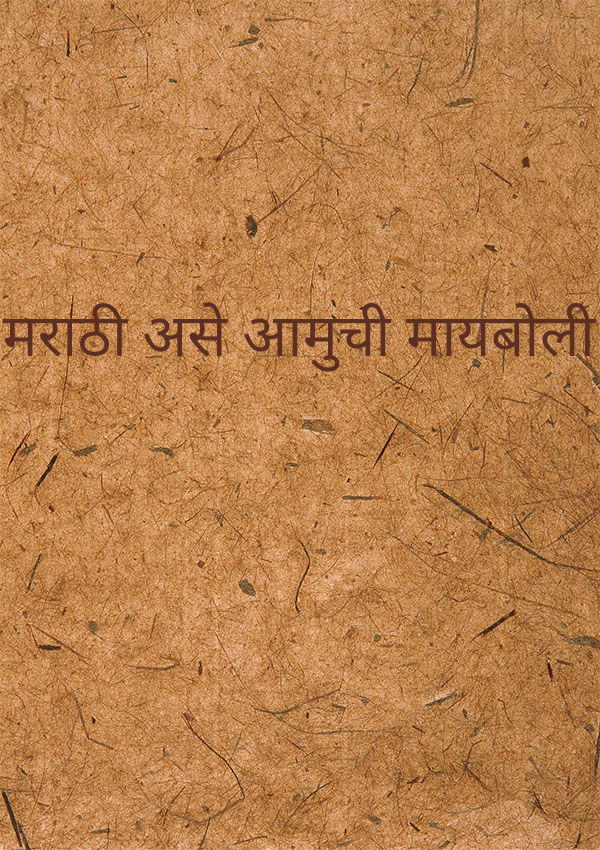 मराठी असे आमुची मायबोली